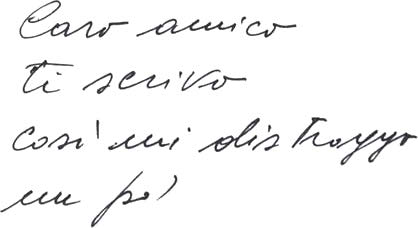 Caro amico
ti scrivo
così mi distraggo
un pò